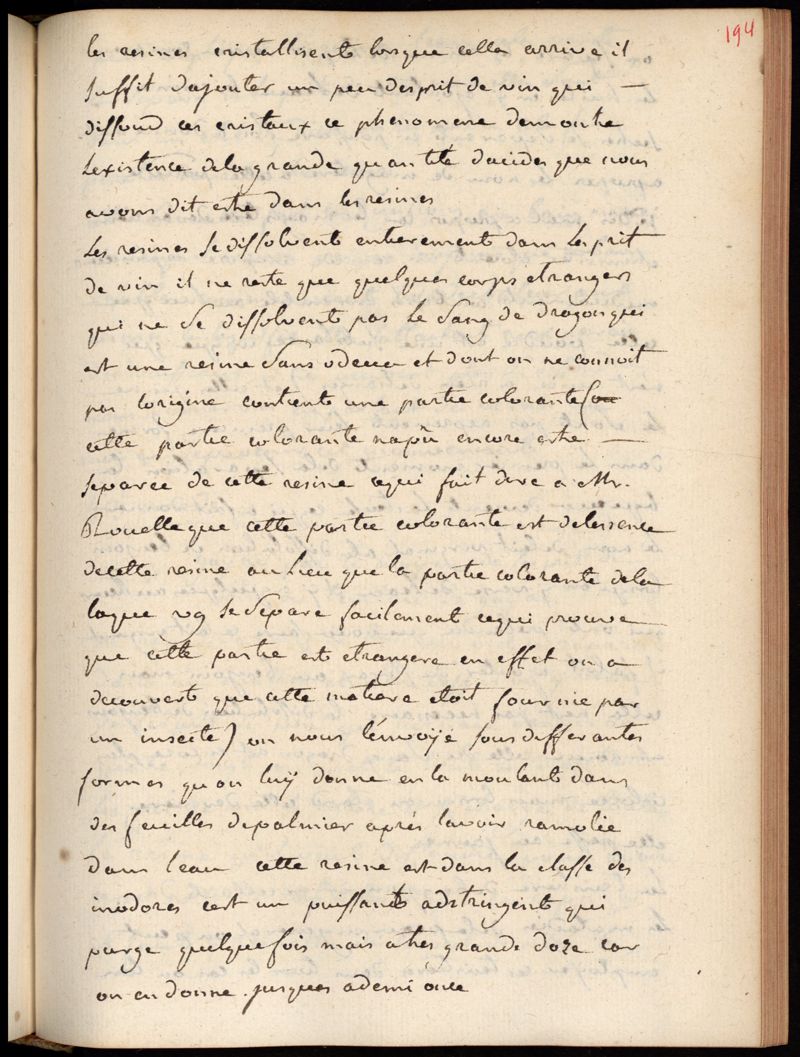 194
les resines cristallisent lorsque cella arrive il
suffit dajouter un peu desprit de vin qui —
dissoud ces cristaux ce phenomene demontre
Lexistence dela grande quantité dacides que nous
avons dit estre dans les resines
Les resines se dissolvent entierement dans Lesprit
de vin il ne reste que quelques corps etrangers
qui ne se dissolvent pas Le sang de dragon qui
est une resine sans odeur et dont on ne connoit
pas lorigine contient une partie colorante (
cette partie colorante napû encore estre —
separée de cette resine cequi fait dire a Mr.
Rouelle que cette partie colorante est delessence
decette resine au Lieu que la partie colorante dela
laque se separe facilement cequi prouve
que cette partie est etrangere en effet on a
decouvert que cette matiere etoit fournie par
un insecte) on nous l'envoÿe sous differantes
formes quon luÿ donne en la moulant dans
des feuilles depalmier aprés lavoir ramolie
dans leau cette resine est dans la classe des
inodores cest un puissant adstringent qui
purge quelquefois mais a tres grande doze car
on en donne jusques ademi once